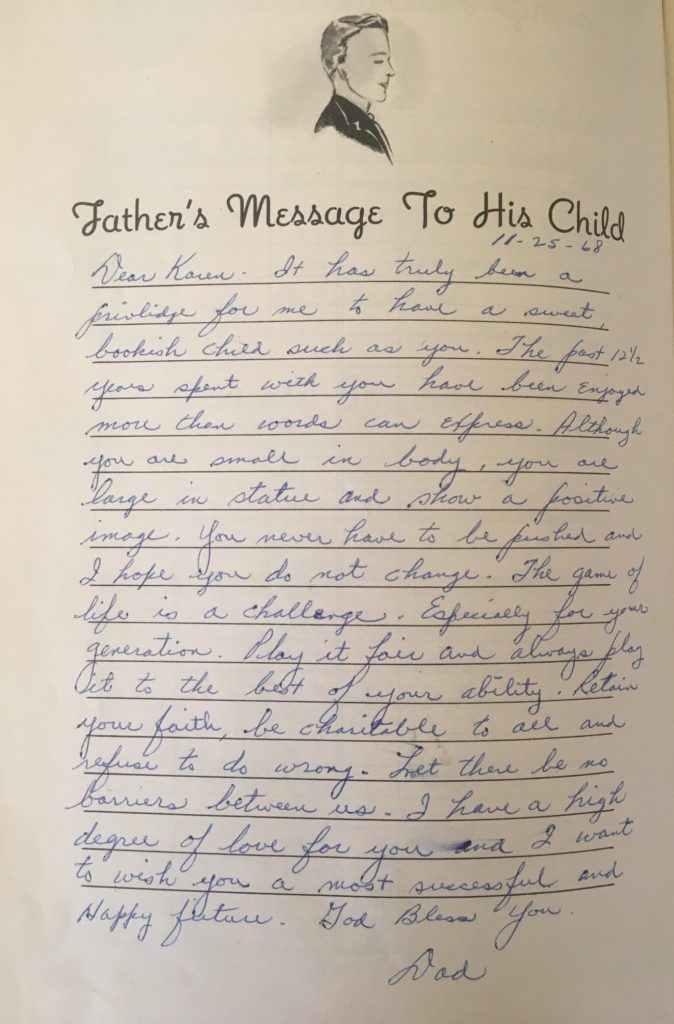 Father's Message To His Child
11-25-68
Dear Karen. It has truly been a
privlidge for me to have a sweet,
bookish child such as you. The past 12½
years spent with you have been enjoyed
more than words can express. Although
you are small in body, you are
large in statue and show a positive
image. You never have to be pushed and
I hope you do not change. The game of
life is a challenge. Especially for your
generation. Play it fair and always play
it to the best of your ability. Retain
your faith, be charitable to all and
refuse to do wrong. Let there be no
barriers between us. I have a high
degree of love for you and I want
to wish you a most successful and
Happy future. God Bless You.
Dad